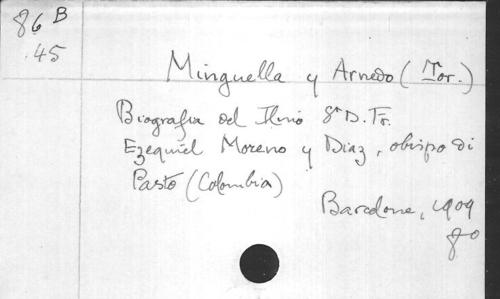 86 B
.45
Minguella y Arnedo (Tor.)
Biografia del Ilmo Sr D. Fr.
Ezequiel Moreno y Diaz, obispo di
Pasto (Colombia)
Barcelone, 1909
8º